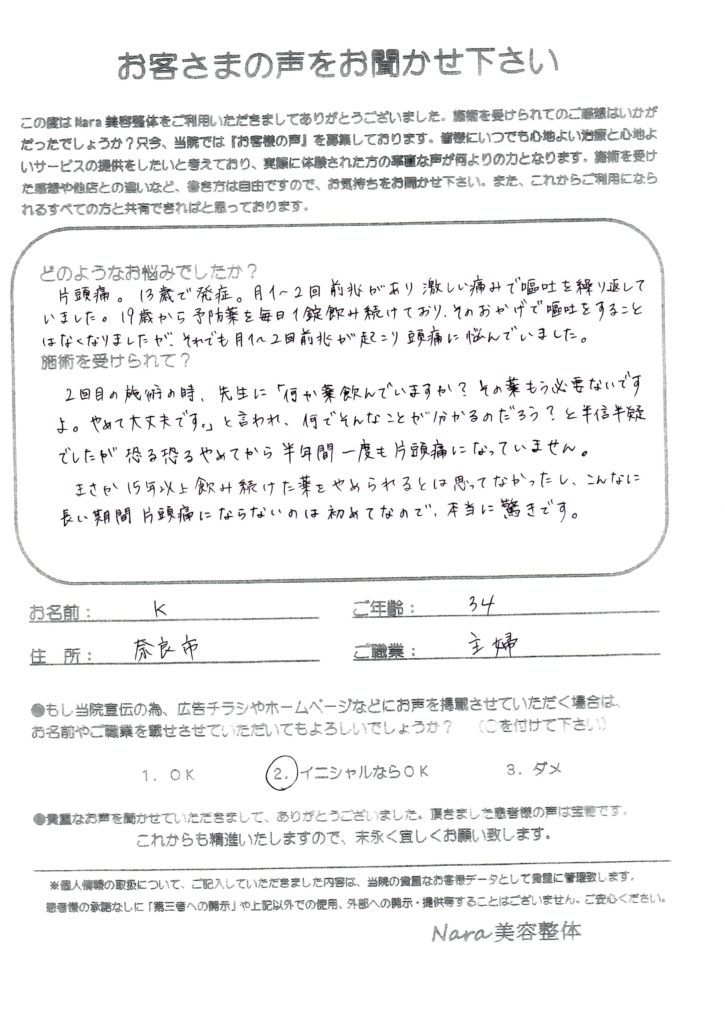 お客さまの声をお聞かせ下さい
この度はNara美容整体をご利用いただきましてありがとうございました。施術を受けられてのご感想はいかが
だったでしょうか？只今、当院では『お客様の声』を募集しております。皆様にいつでも心地よい治療と心地よ
いサービスの提供をしたいと考えており、実際に体験された方の率直な声が何よりの力となります。施術を受け
た感想や他店との違いなど、書き方は自由ですので、お気持ちをお聞かせ下さい。また、これからご利用になら
れるすべての方と共有できればと思っております。
どのようなお悩みでしたか？
片頭痛。13歳で発症。月1〜2回前兆があり激しい痛みで嘔吐を繰り返して
いました。19歳から予防薬を毎日1錠飲み続けており、そのおかげで嘔吐をすること
はなくなりましたが、それでも月1〜2回前兆が起こり頭痛に悩んでいました。
施術を受けられて？
2回目の施術の時、先生に「何か薬飲んでいますか？その薬もう必要ないです
よ。やめて大丈夫です。」と言われ、何でそんなことが分かるのだろう？と半信半疑
でしたが恐る恐るやめてから半年間一度も片頭痛になっていません。
まさか15年以上飲み続けた薬をやめられるとは思ってなかったし、こんなに
長い期間片頭痛にならないのは初めてなので、本当に驚きです。
お名前： K ご年齢： 34
住 所： 奈良市 ご職業： 主婦
●もし当院宣伝の為、広告チラシやホームページなどにお声を掲載させていただく場合は、
お名前やご職業を載せさせていただいてもよろしいでしょうか？ （○を付けて下さい）
1．OK 2．イニシャルならOK 3．ダメ
●貴重なお声を聞かせていただきまして、ありがとうございました。頂きました患者様の声は宝物です。
これからも精進いたしますので、末永く宜しくお願い致します。
※個人情報の取扱について、ご記入していただきました内容は、当院の貴重なお客様データとして貴重に管理致します。
患者様の承諾なしに「第三者への開示」や上記以外での使用、外部への開示・提供等することはございません。ご安心ください。
Nara美容整体